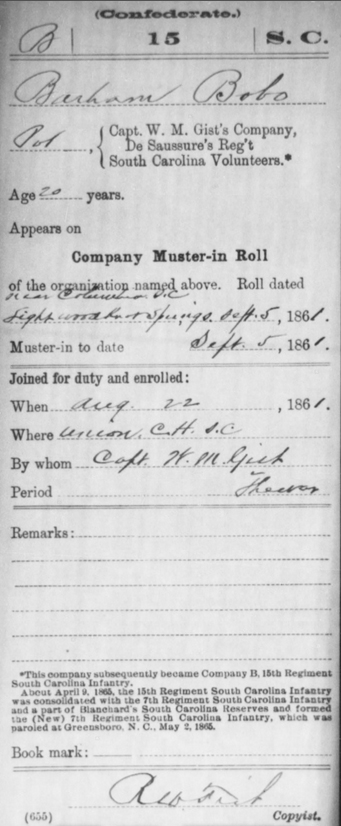 (Confederate.)
B | 15 | S. C.
Barham Bobo
Pvt, { Capt. W. M. Gist's Company,
De Saussure's Reg't
South Carolina Volunteers.*
Age 20 years.
Appears on
Company Muster-in Roll
of the organization named above. Roll dated
near Columbia S.C
Lightwood Springs, Sept. 5, 1861.
Muster-in to date Sept. 5, 1861.
Joined for duty and enrolled:
When Aug. 22, 1861.
Where Union C.H. S.C
By whom Capt. W. M. Gist
Period The war
Remarks:
*This company subsequently became Company B, 15th Regiment
South Carolina Infantry.
About April 9, 1865, the 15th Regiment South Carolina Infantry
was consolidated with the 7th Regiment South Carolina Infantry
and a part of Blanchard's South Carolina Reserves and formed
the (New) 7th Regiment South Carolina Infantry, which was
paroled at Greensboro, N. C., May 2, 1865.
Book mark:
(655) Copyist.